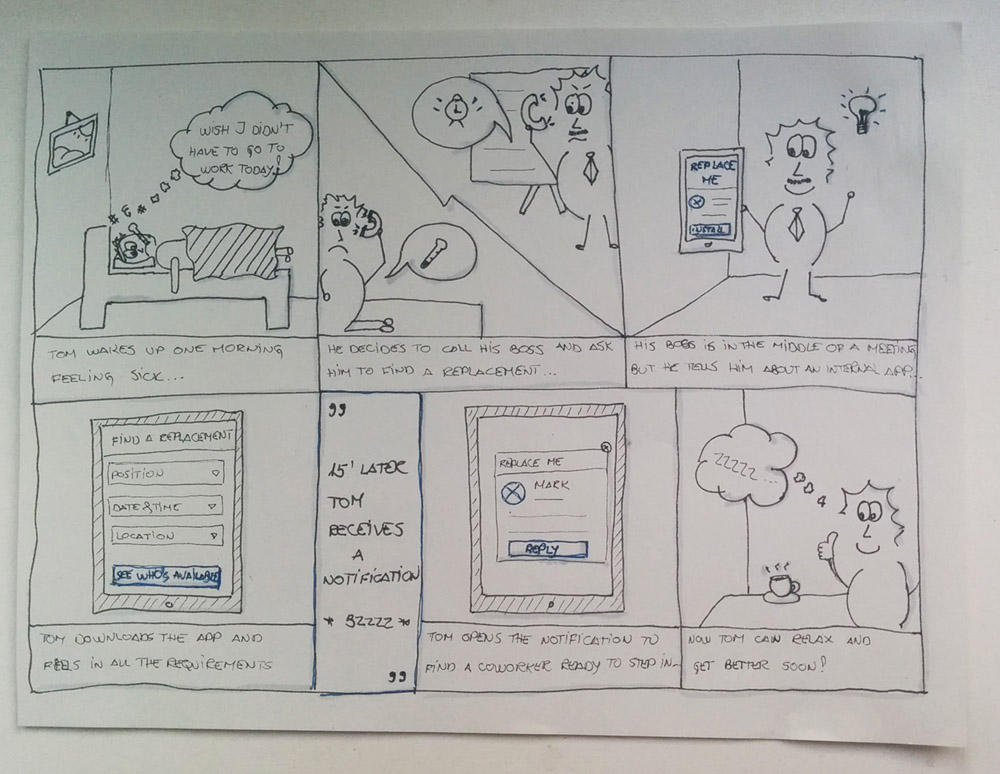 WISH I DIDN'T
HAVE TO GO TO
WORK TODAY!
TOM WAKES UP ONE MORNING
FEELING SICK...
HE DECIDES TO CALL HIS BOSS AND ASK
HIM TO FIND A REPLACEMENT...
REPLACE
ME
INSTALL
HIS BOSS IS IN THE MIDDLE OF A MEETING
BUT HE TELLS HIM ABOUT AN INTERNAL APP...
FIND A REPLACEMENT
POSITION
DATE&TIME
LOCATION
SEE WHO'S AVAILABLE
TOM DOWNLOADS THE APP AND
FEELS IN ALL THE REQUIREMENTS
"
15' LATER
TOM
RECEIVES
A
NOTIFICATION
* BZZZZ *
"
REPLACE ME
MARK
REPLY
TOM OPENS THE NOTIFICATION TO
FIND A COWORKER READY TO STEP IN...
ZZZZZ...
NOW TOM CAN RELAX AND
GET BETTER SOON!